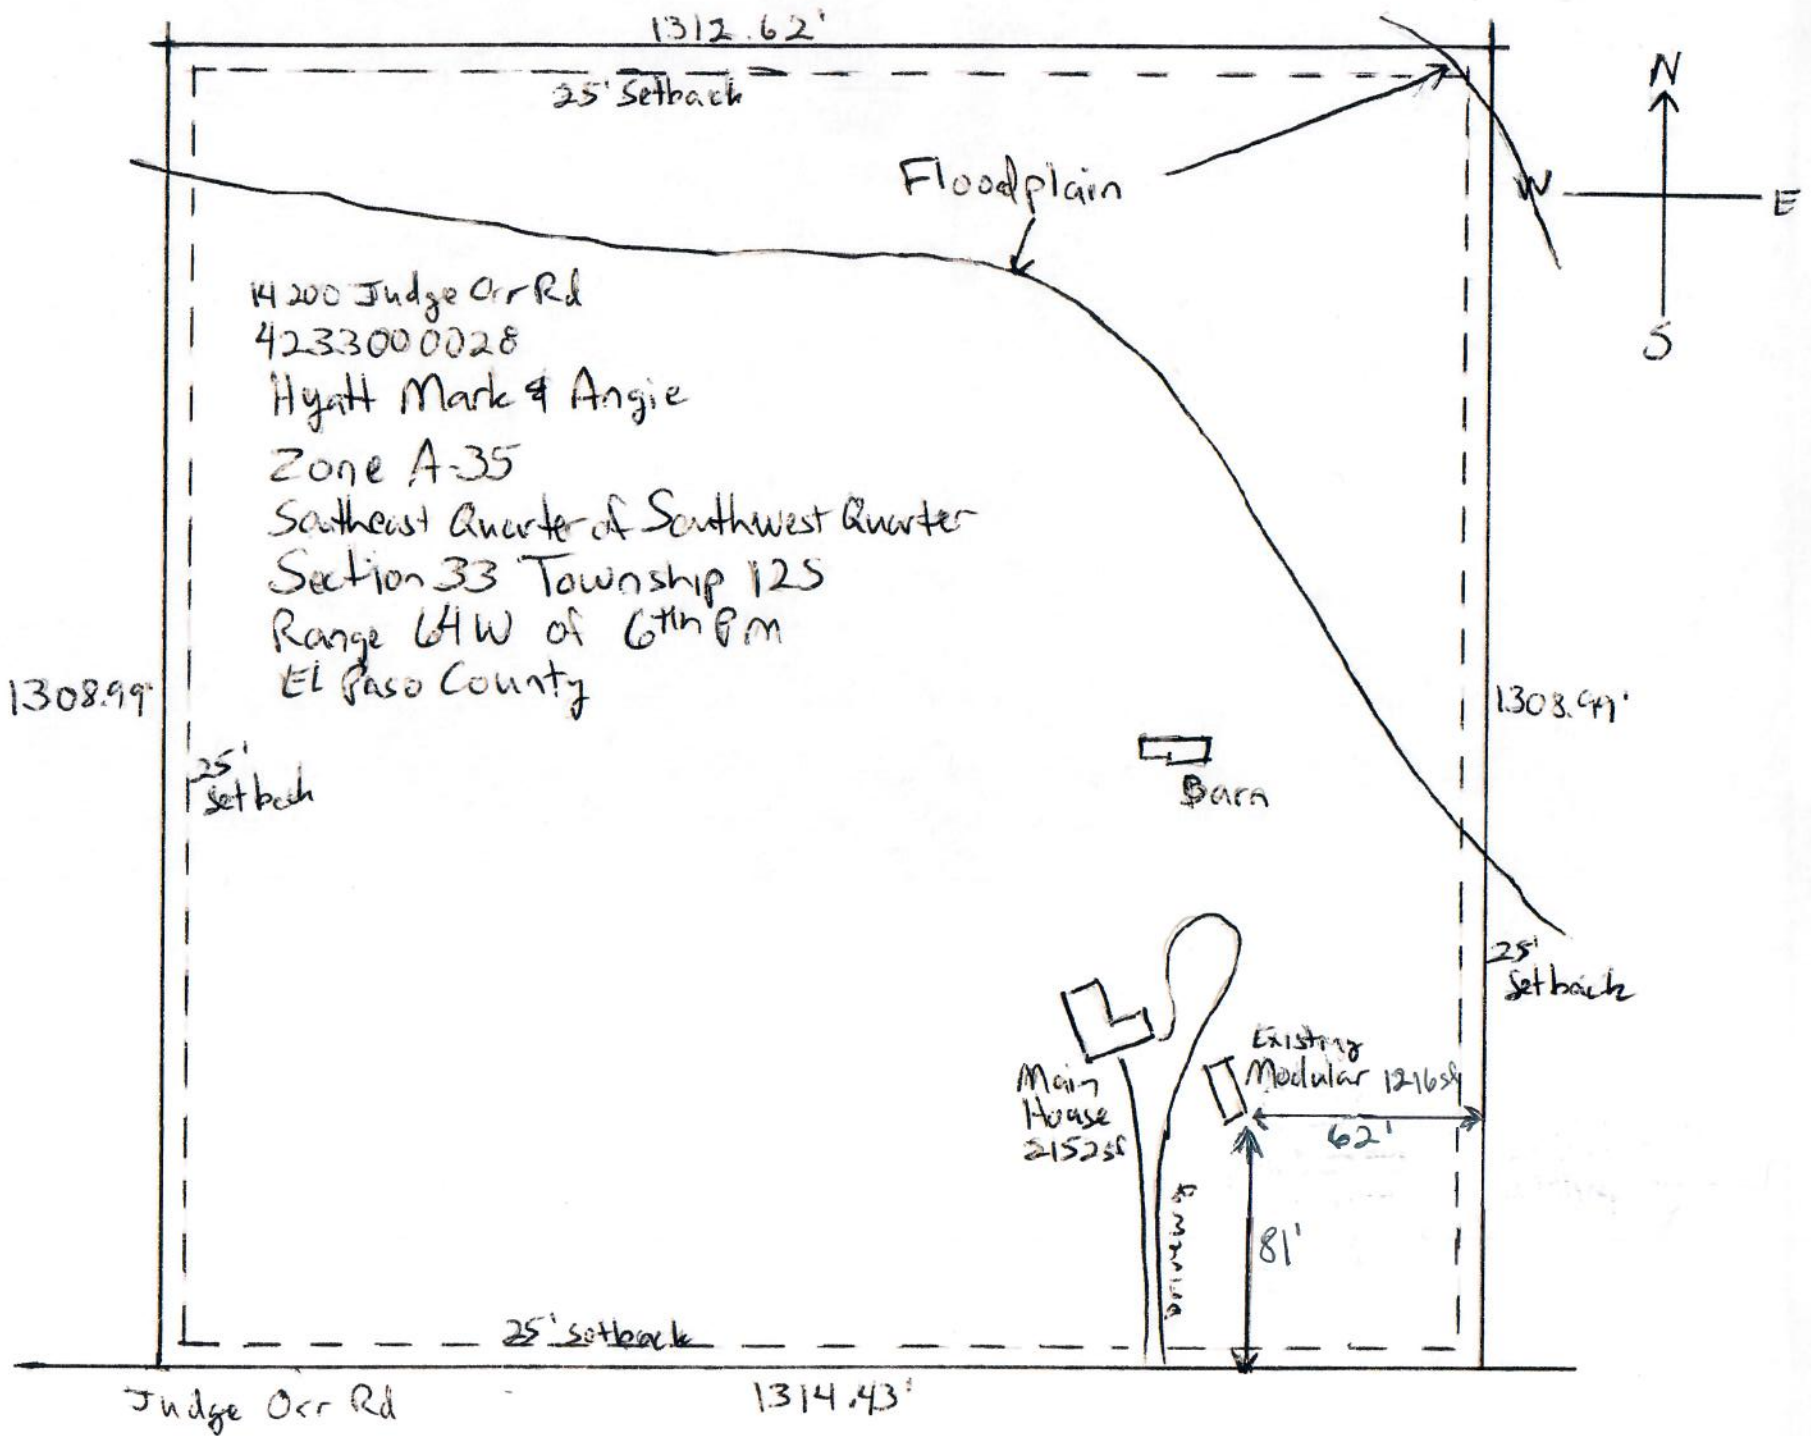 1312.62'
25' Setback
N
Floodplain
W
E
S
14200 Judge Orr Rd
4233000028
Hyatt Mark & Angie
Zone A-35
Southeast Quarter of Southwest Quarter
Section 33 Township 12S
Range 64W of 6th PM
El Paso County
1308.99'
1308.99'
25'
Setback
Barn
25'
Setback
Existing
Modular 1216sf
Main
House
2152sf
62'
Driveway
81'
25' Setback
Judge Orr Rd
1314.43'